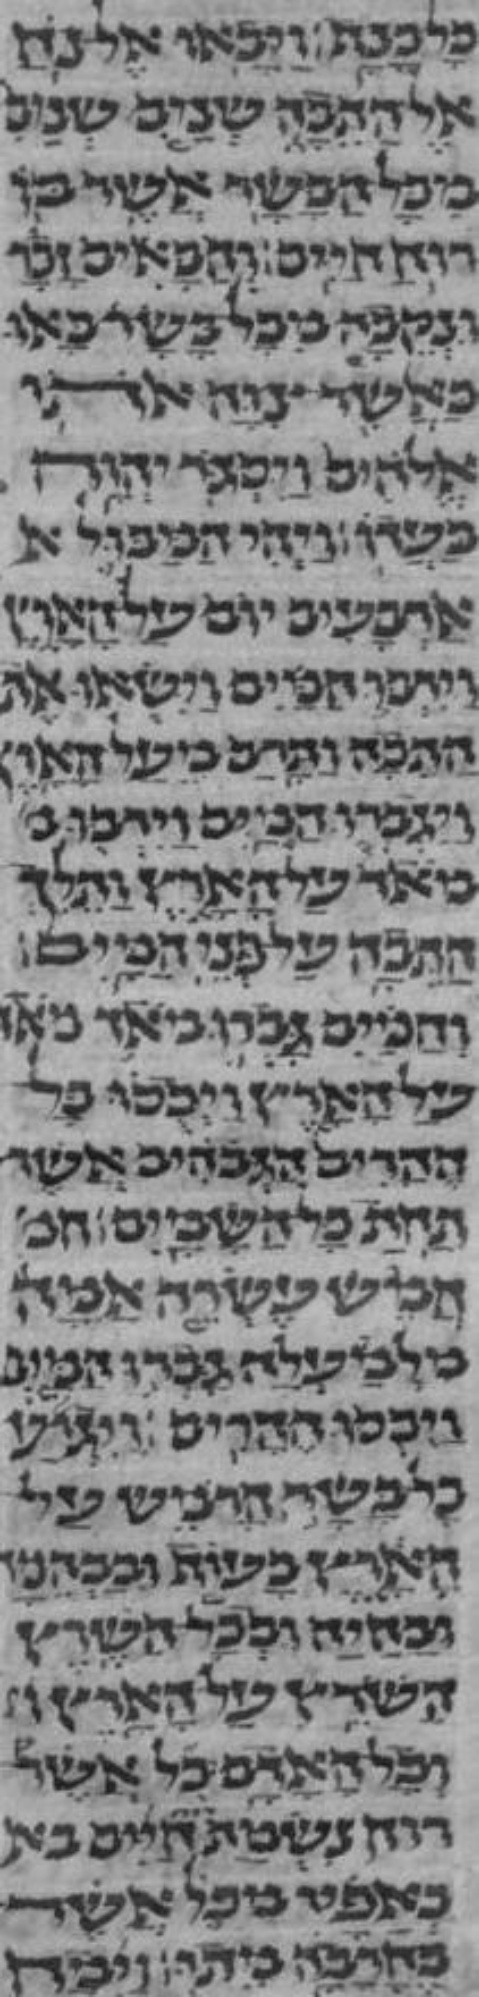 כל כנף׃ ויבאו אל נח
אל התבה שנים שנים
מכל הבשר אשר בו
רוח חיים׃ והבאים זכר
ונקבה מכל בשר באו
כאשר צוה אתו
אלהים ויסגר יהוה
בעדו׃ ויהי המבול א
ארבעים יום על הארץ
וירבו המים וישאו את
התבה ותרם מעל הארץ
ויגברו המים וירבו מ
מאד על הארץ ותלך
התבה על פני המים׃
והמים גברו מאד מאד
על הארץ ויכסו כל
ההרים הגבהים אשר
תחת כל השמים׃ חמ
חמש עשרה אמה
מלמעלה גברו המים
ויכסו ההרים׃ ויגוע
כל בשר הרמש על
הארץ בעוף ובבהמה
ובחיה ובכל השרץ
השרץ על הארץ ו
וכל האדם׃ כל אשר
רוח נשמת חיים בא
באפיו מכל אשר
בחרבה מתו׃ וימח